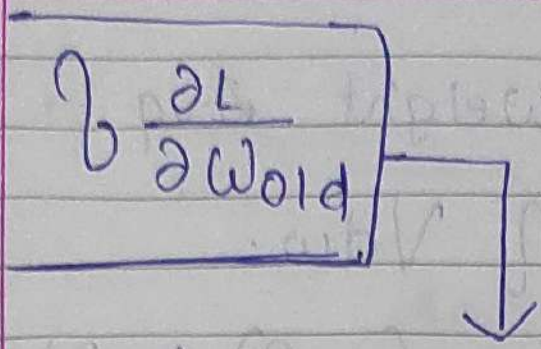 η ∂L/∂W_old